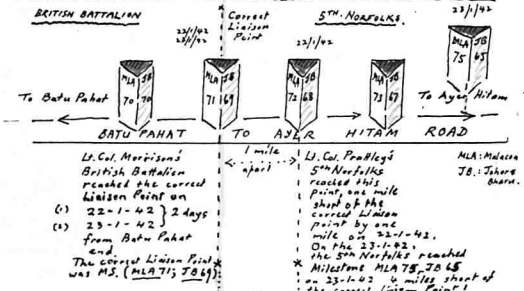 BRITISH BATTALION
Correct
Liaison
Point
5TH. NORFOLKS.
23/1/42
22/1/42
23/1/42
22/1/42
MLA 75 JB 65
MLA 70 JB 70
MLA 71 JB 69
MLA 72 JB 68
MLA 73 JB 67
To Batu Pahat
To Ayer Hitam
BATU PAHAT TO AYER HITAM ROAD
1 mile
apart
MLA: Malacca
JB: Johore
Bharu.
Lt. Col. Morrison's
British Battalion
reached the correct
Liaison Point on
(1) 22-1-42 } 2 days
(2) 23-1-42
from Batu Pahat
end
The correct Liaison Point
was MS. (MLA 71; JB 69)
Lt. Col. Prattley's
5th Norfolks
reached this
point, one mile
short of the
correct Liaison
point by one
mile on 22-1-42.
On the 23-1-42.
the 5th Norfolks reached
Milestone MLA 75, JB 65
on 23-1-42 4 miles short of
the correct Liaison Point!